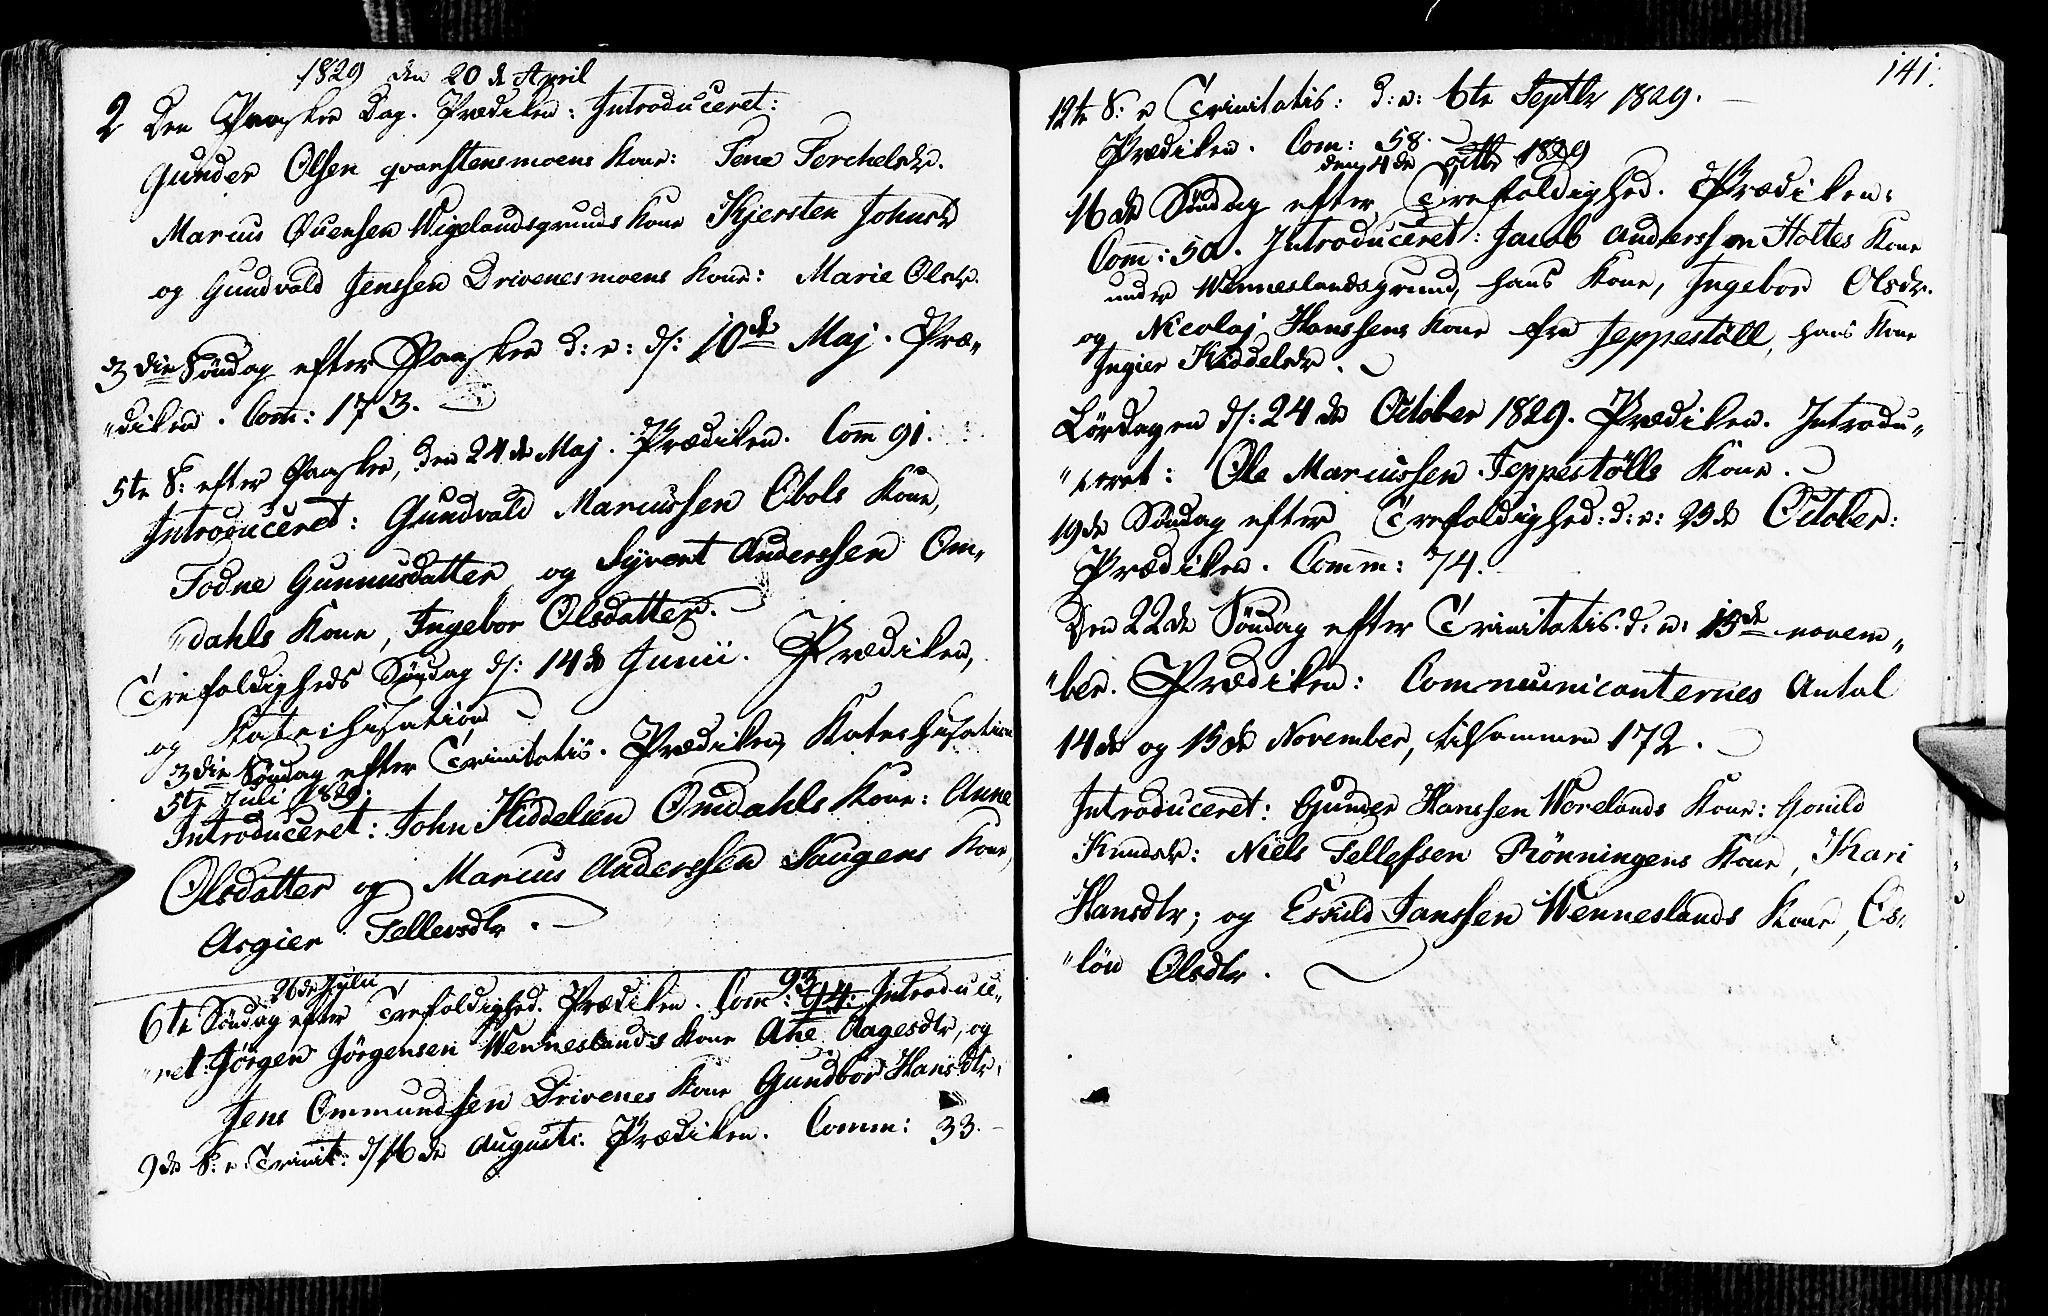 1829 den 20de April
2 den Paaske Dag. Prædiken: Introduceret:
Gunder Olsen qvarstensmoens Kone: Tene Terchelsdr.
Marcus Ovensen Wigelandsgrunds Kone Kjersten Johnsdr
og Gundvald Jenssen Drivenesmoens Kone: Marie Olsdr.
3die Søndag efter Paaske d: e: d/: 10de Maj. Præ„
„diken. Com: 173.
5te S: efter Paaske, den 24de Maj. Prædiken. Com 91.
Introduceret: Gundvald Marcussen Ebols Kone,
Todne Gunnusdatter og Syvert Anderssen Om„
„dahls Kone, Ingebor Olsdatter.
Trefoldigheds Søndag d/: 14de Junii. Prædiken,
og Katechisation
3die Søndag efter Trinitatis. Prædiken, Katechisation
5te Juli 1829.
Introduceret: John Kiddelsen Omdahls Kone: Anne
Olsdatter og Marcus Anderssen Haugens Kone,
Asgier Tellevsdtr.
26de Julii
6te Søndag efter Trefoldighed. Prædiken. Com: 94: 93 Introduce„
„ret Jørgen Jørgensen Wenneslands Kone Ane Aagesdtr, og
Jens Ommundsen Drivenes Kone Gundbor Hansdtr.
9de S: e: Trinit: d/16de Augusti. Prædiken. Comm: 33.
141.
12te S: e Trinitatis: d: e: 6te Septbr 1829.
Prædiken. Com: 58.
den 4de Octbr 1829
16de Søndag efter Trefoldighed. Prædiken:
Com: 50. Introduceret: Jacob Anderssen Holtes Kone
under Wenneslandsgrund, hans Kone, Ingebor Olsdr.
og Nicolaj Hanssens Kone fra Jeppestøll, hans Kone
Ingier Kiddelsdr.
Lørdagen d/: 24de October 1829. Prædiken. Introdu„
„ceret: Ole Marcussen Jeppestølls Kone.
19de Søndag efter Trefoldighed: d: e: 25de October:
Prædiken. Comm: 74.
Den 22de Søndag efter Trinitatis. d: e: 15de novem„
„ber. Prædiken: Communicanternes Antal
14de og 15de November, tilsammen 172.
Introduceret: Gunder Hanssen Worelands Kone: Gonild
Knudsdr: Niels Tellefsen Rønningens Kone, Kari
Hansdtr; og Eskild Janssen Wenneslands Kone, Os„
„løu Olsdtr.